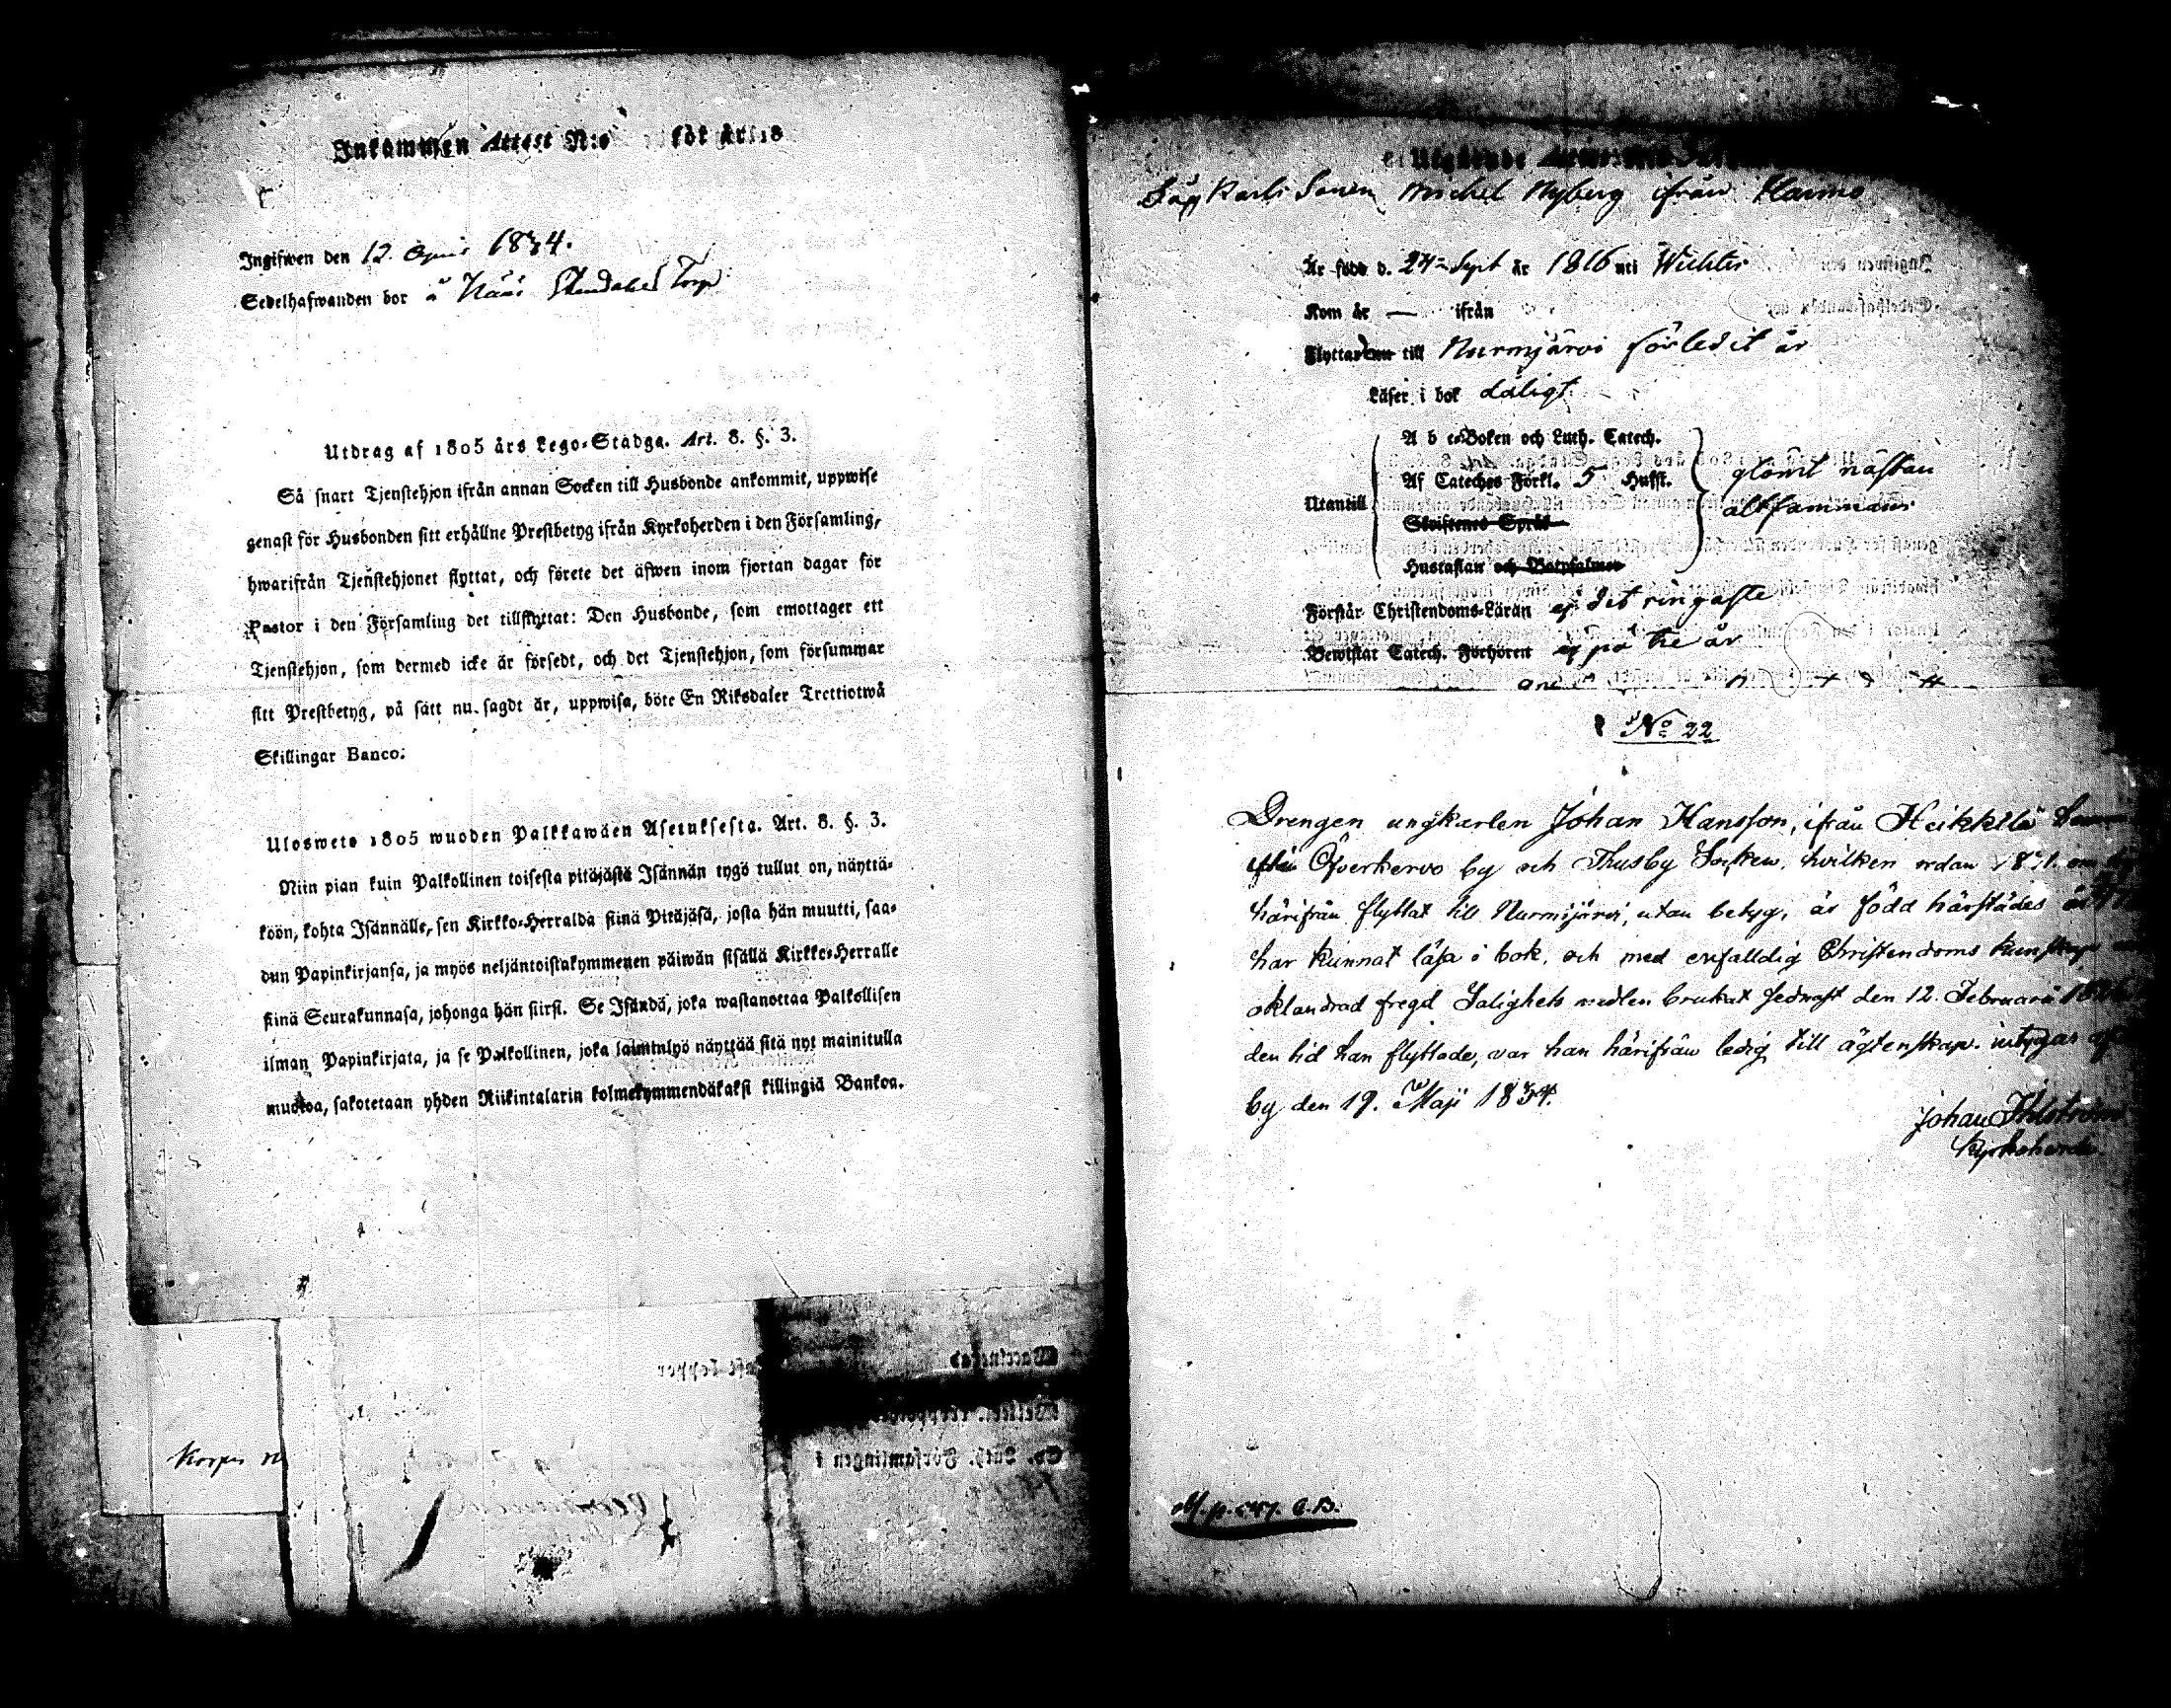 Inkommen Attest N:o för år 18
Ingifwen den 12. April 1834.
Sedelhafwanden bor å Näs Torp
Utdrag af 1805 års Lego-Stadga. Art. 8. §. 3.
Så snart Tjenstehjon ifrån annan Socken till Husbonde ankommit, uppwise
genast för Husbonden sitt erhållne Prestbetyg ifrån Kyrkoherden i den Församling,
hwarifrån Tjenstehjonet flyttat, och förete det äfwen inom fjortan dagar för
Pastor i den Församling det tillflyttat: Den Husbonde, som emottager ett
Tjenstehjon, som dermed icke är försedt, och det Tjenstehjon, som försummar
sitt Prestbetyg, på sätt nu sagdt är, uppwisa, böte En Riksdaler Trettiotwå
Skillingar Banco.
Ulosweto 1805 wuoden Palkkawäen Asetuksesta. Art. 8. §. 3.
Niin pian kuin Palkollinen toisesta pitäjästä Isännän tygö tullut on, näyttä-
köön, kohta Isännälle, sen Kirkko-Herralda siinä Pitäjäsä, josta hän muutti, saa-
dun Papinkirjansa, ja myös neljäntoistakymmenen päiwän sisällä Kirkko-Herralle
siinä Seurakunnasa, johonga hän siirsi. Se Isändä, joka wastanottaa Palkollisen
ilman Papinkirjata, ja se Palkollinen, joka laiminlyö näyttää sitä nyt mainitulla
muotoa, sakotetaan yhden Riikintalarin kolmekymmendäkaksi killingiä Bankoa.
Korpi
Utgående
Karls Sonen Michel Nyberg ifrån Harmo
Är född d. 27 Sept år 1816 uti Wichtis
Kom år — ifrån
Flyttar till Nurmjärvi förledit år
Läser i bok dåligt.
A b c-Boken och Luth. Catech.
Af Cateches Förkl. 5 Hufst. glömt nästan
Utantill altsammans
Skriftenes Språk
Hustaflan och Botpsalmer
Förstår Christendoms-Läran ej det ringaste
Bewistat Catech. Förhören ej på tre år
No 22
Drengen ungkarlen Johan Hansson, ifrån Heikkilä
Öfverkervo by och Thusby Socken, hvilken redan
härifrån flyttat till Nurmijärvi, utan betyg, är född härstädes
har kunnat läsa i bok, och med enfalldig Christendoms kunskap
oklandrad fregd Salighets medlen brukat sednast den 12. Februarii
den tid han flyttade, var han härifrån ledig till ägtenskap. intygas
by den 19. Maji 1834.
Johan
Kyrkoherde.